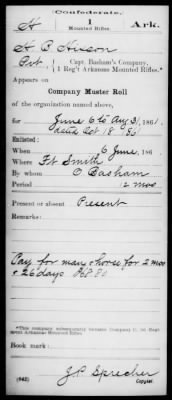 Confederate.
H 1 Ark.
Mounted Rifles.
H B Hixson
Pvt, Capt. Basham's Company,
1 Reg't Arkansas Mounted Rifles.*
Appears on
Company Muster Roll
of the organization named above,
for June 6 to Aug 31, 1861.
dated Oct 18, 186
Enlisted:
When 6 June, 186 .
Where Ft Smith
By whom O Basham
Period 12 mos
Present or absent Present
Remarks:
Pay for man & horse for 2 mos
& 26 days
*This company subsequently became Company H, 1st Regiment
Arkansas Mounted Rifles.
Book mark:
(642) J.P. Sprecher
Copyist.